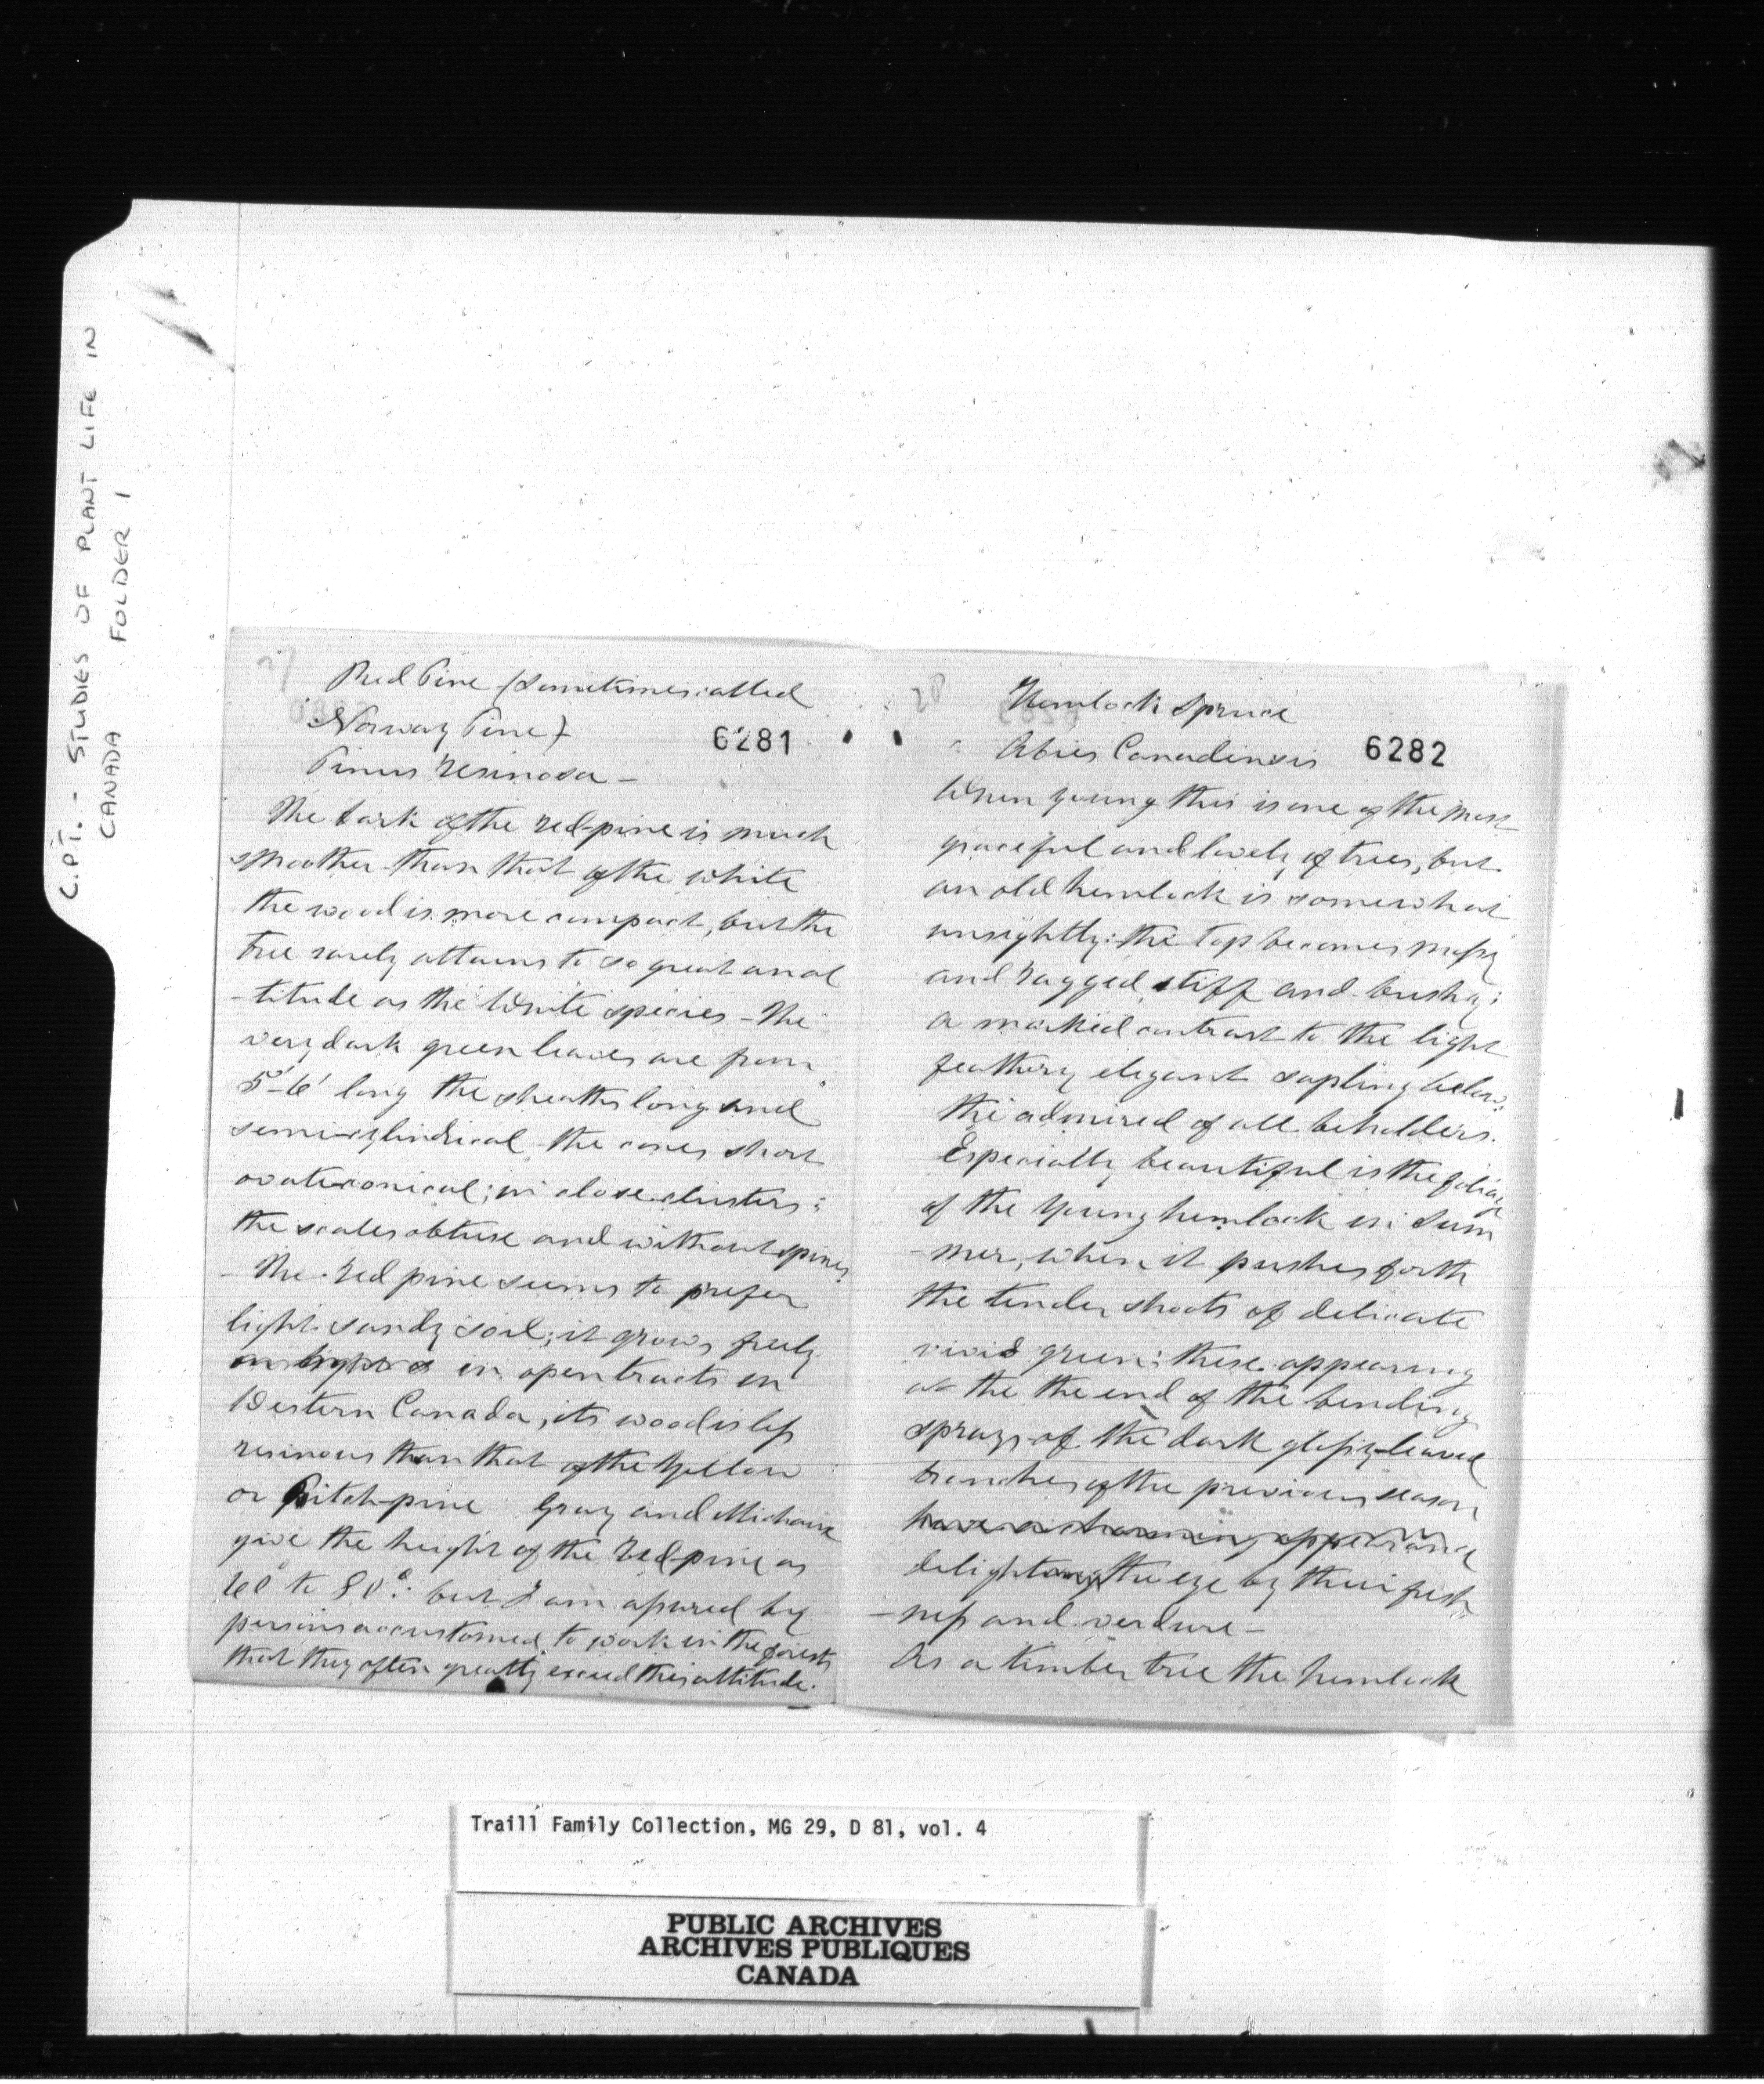 C.P.T. - STUDIES OF PLANT LIFE IN
CANADA FOLDER 1
27
Red Pine (sometimes called
Norway Pine)
6281
Pinus resinosa -
The bark of the red-pine is much
smoother than that of the white
the wood is more compact, but the
tree rarely attains to so great an al
-titude as the White species - The
very dark green leaves are from
5'-6' long the sheaths long and
semi-cylindrical the cones short
ovate-conical; in close clusters:
the scales obtuse and without spines
- The red pine seems to prefer
light sandy soil; it grows freely
in open tracts in
Western Canada, its wood is leſs
resinous than that of the Yellow
or Pitch-pine Gray and Michaux
give the height of the red-pine as
60° to 80°: but I am aſsured by
persons accustomed to work in the forests
that they often greatly exceed this altitude.
28
Hemlock Spruce
Abies Canadensis
6282
When young this is one of the most
graceful and lovely of trees, but
an old hemlock is somewhat
unsightly: the top becomes moſsy
and ragged, stiff and bushy;
a marked contrast to the light
feathery elegant sapling below:
the admired of all beholders.
Especially beautiful is the foliage
of the Young hemlock in Sum
-mer, when it pushes forth
the tender shoots of delicate
vivid green: these appearing
at the the end of the bending
sprays of the dark gloſsy-leaved
branches of the previous season
have a charming appearance
delight the eye by their fresh
-neſs and verdure -
As a timber tree the hemlock
Traill Family Collection, MG 29, D 81, vol. 4
PUBLIC ARCHIVES
ARCHIVES PUBLIQUES
CANADA